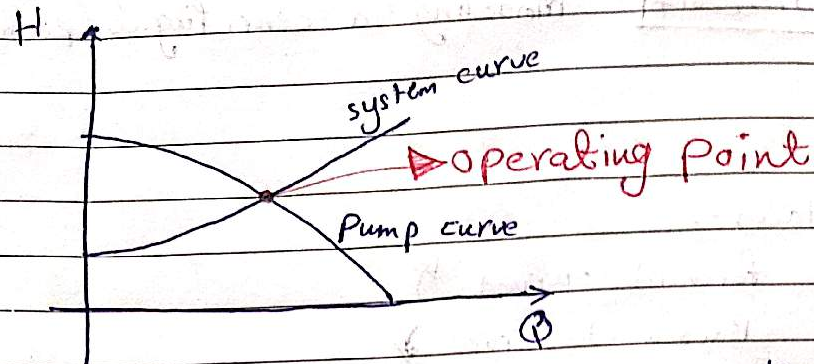 H
system curve
operating point
Pump curve
Q